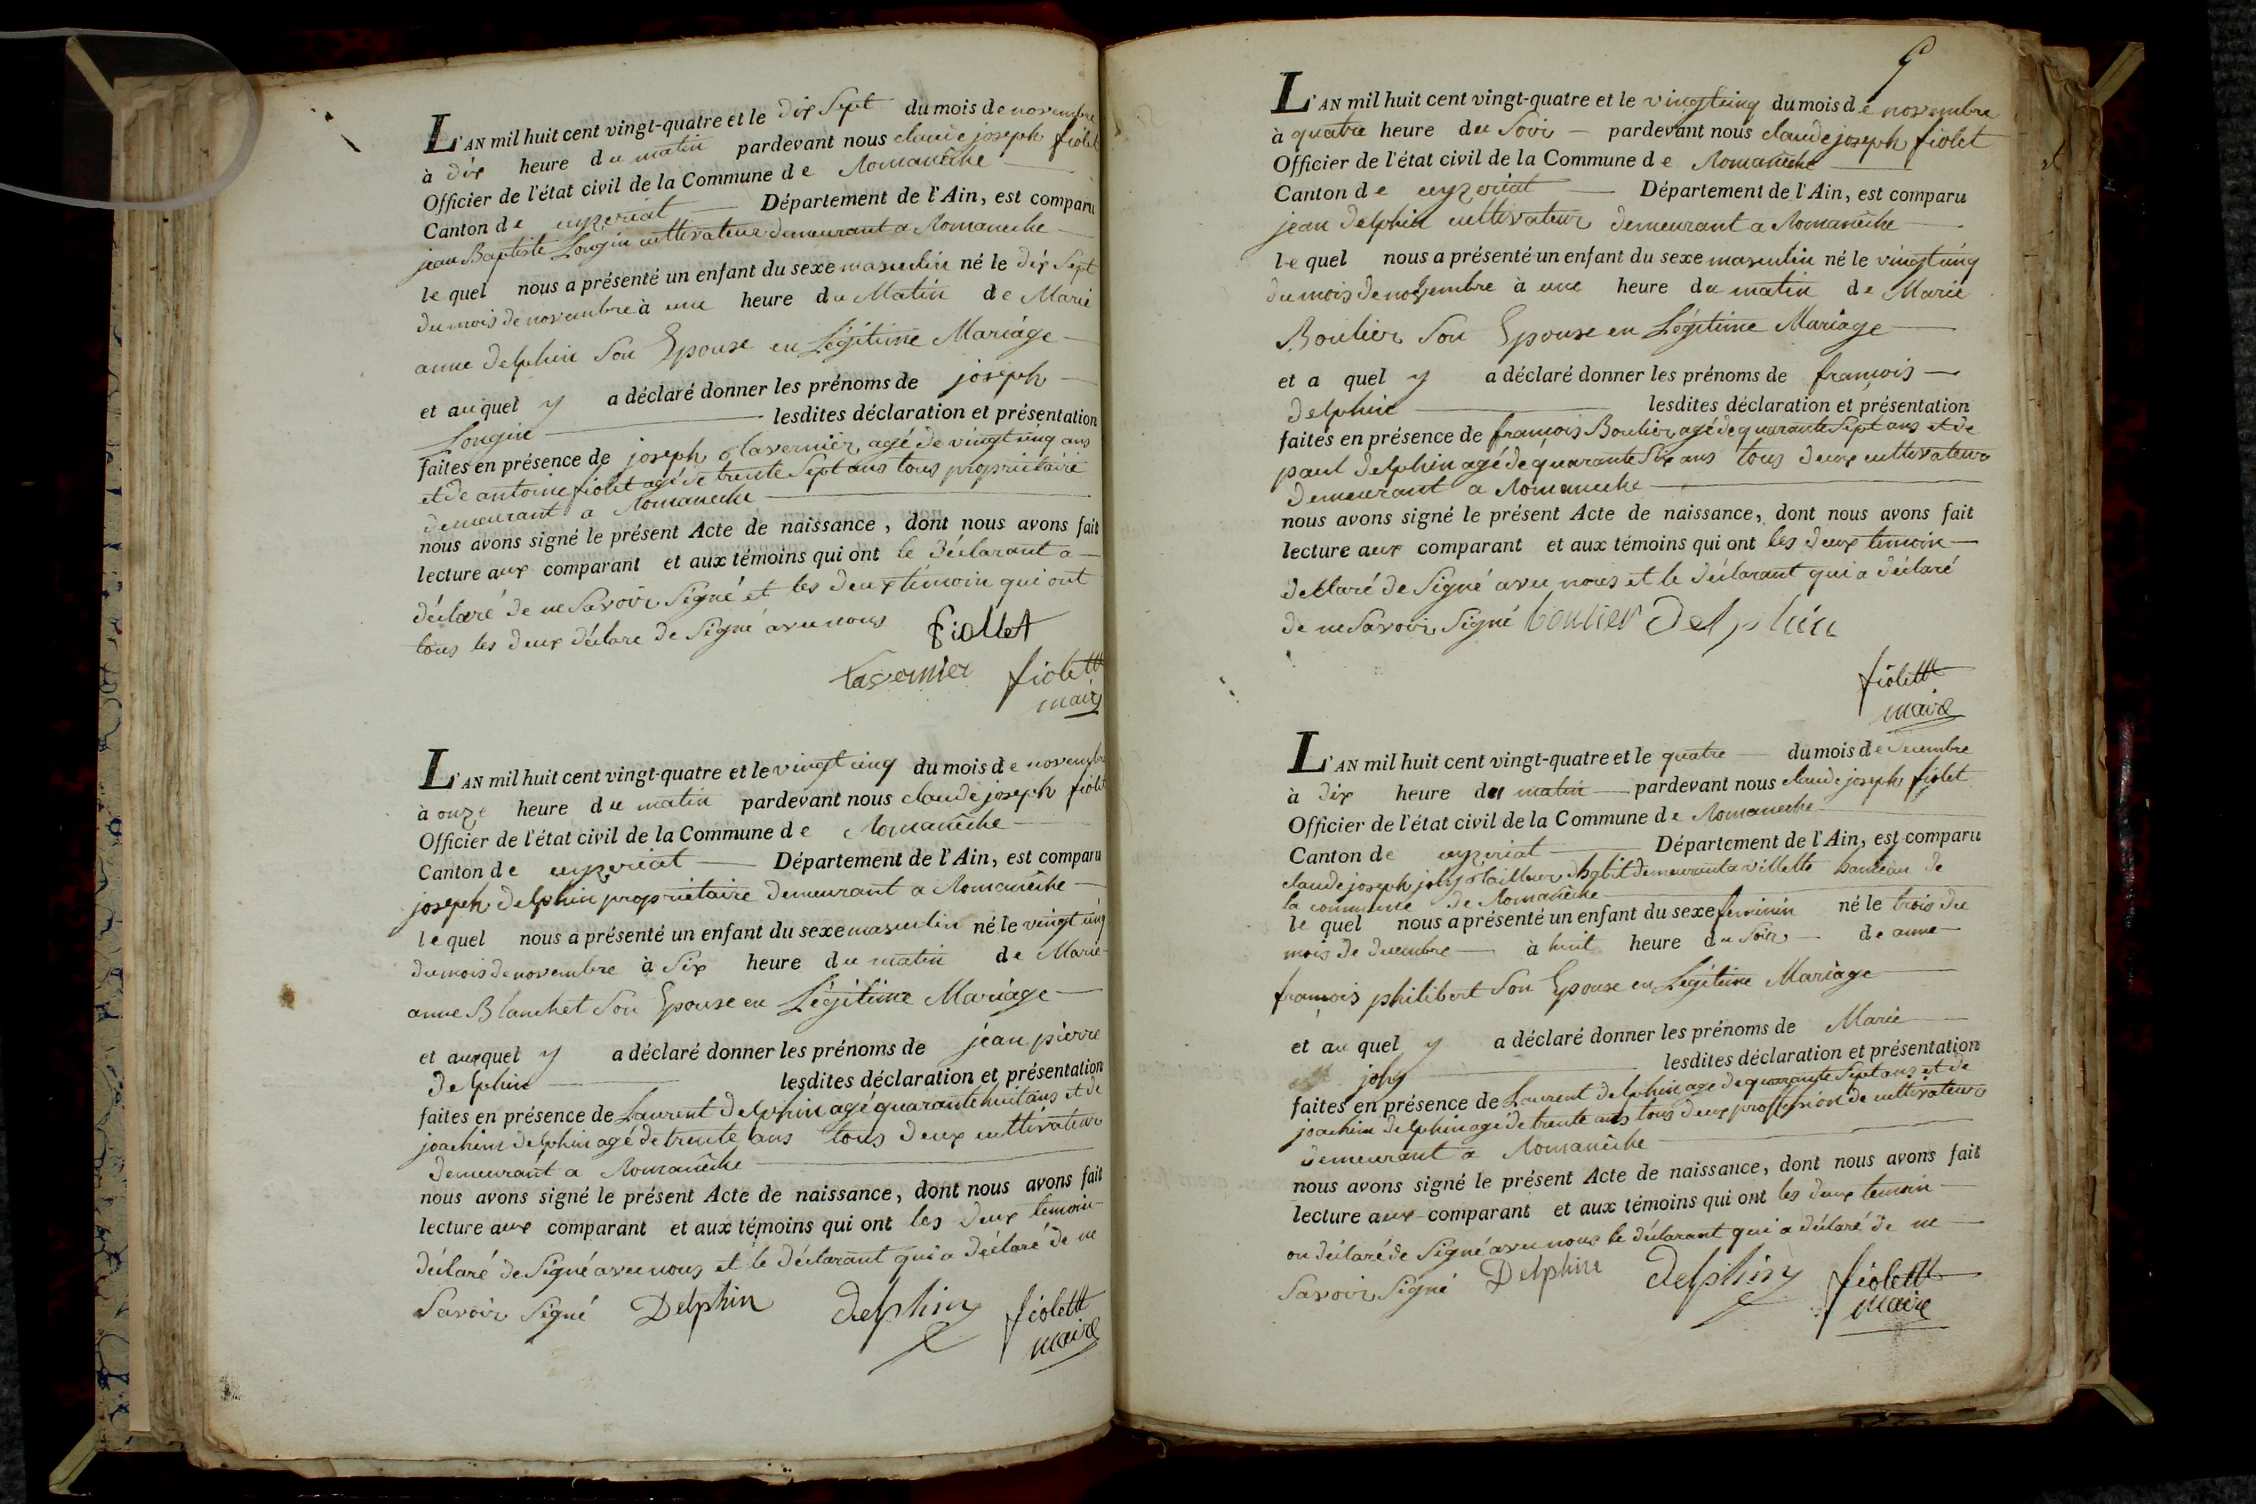 L'AN mil huit cent vingt-quatre et le dix Sept du mois de novembre
à dix heure du matin pardevant nous claude joseph fiolet
Officier de l'état civil de la Commune de Romanêche
Canton de ceyzeriat Département de l'Ain, est comparu
jean Baptiste Longin cultivateur demeurant a Romaneche
le quel nous a présenté un enfant du sexe masculin né le dix Sept
du mois de novembre à une heure du Matin de Marie
anne delphin Son Epouse en Légitime Mariage
et auquel y a déclaré donner les prénoms de joseph
Longin lesdites déclaration et présentation
faites en présence de joseph tavernier agé de vingt cinq ans
et de antoine fiolet agé de trente Sept ans tous proprietaire
demeurant a Romaneche
nous avons signé le présent Acte de naissance, dont nous avons fait
lecture aux comparant et aux témoins qui ont le déclarant a
déclaré de ne Savoir Signé et les deux témoin qui ont
tous les deux déclare de Signé avec nous fiollet
tavernier fiolet
maire
L'AN mil huit cent vingt-quatre et le vingt cinq du mois de novembre
à onze heure du matin pardevant nous claude joseph fiolet
Officier de l'état civil de la Commune de Romanêche
Canton de ceyzeriat Département de l'Ain, est comparu
joseph delphin proprietaire demeurant a Romanêche
le quel nous a présenté un enfant du sexe masculin né le vingt cinq
du mois de novembre à Six heure du matin de Marie
anne Blanchet Son Epouse en Légitime Mariage
et auxquel y a déclaré donner les prénoms de jean pierre
delphin lesdites déclaration et présentation
faites en présence de Laurent delphin agé quarante huit ans et de
joachim delphin agé de trente ans tous deux cultivateur
demeurant a Romanêche
nous avons signé le présent Acte de naissance, dont nous avons fait
lecture aux comparant et aux témoins qui ont les deux temoin
déclaré de Signé avec nous et le déclarant qui a déclaré de ne
Savoir Signé Delphin delphin fiolet
maire
L'AN mil huit cent vingt-quatre et le vingt cinq du mois de novembre
à quatre heure du Soir pardevant nous claude joseph fiolet
Officier de l'état civil de la Commune de Romanêche
Canton de ceyzeriat Département de l'Ain, est comparu
jean delphin cultivateur demeurant a Romanêche
le quel nous a présenté un enfant du sexe masculin né le vingt cinq
du mois de novembre à une heure du matin de Marie
Boulier Son Epouse en Légitime Mariage
et a quel y a déclaré donner les prénoms de francois
delphin lesdites déclaration et présentation
faites en présence de francois Boulier agé de quarante Sept ans et de
paul delphin agé de quarante Six ans tous deux cultivateur
demeurant a Romaneche
nous avons signé le présent Acte de naissance, dont nous avons fait
lecture aux comparant et aux témoins qui ont les deux temoin
declaré de Signé avec nous et le déclarant qui a déclaré
de ne Savoir Signé boulier Delphin
fiolet
maire
L'AN mil huit cent vingt-quatre et le quatre du mois de decembre
à dix heure du matin pardevant nous claude joseph fiolet
Officier de l'état civil de la Commune de Romaneche
Canton de ceyzeriat Département de l'Ain, est comparu
claude joseph joly tailleur d'habit demeurant a villette hameau de
la commune de Romanêche
le quel nous a présenté un enfant du sexe feminin né le trois du
mois de decembre à huit heure du Soir de anne
francois philibert Son Epouse en Légitime Mariage
et au quel y a déclaré donner les prénoms de Marie
joly lesdites déclaration et présentation
faites en présence de Laurent delphin age de quarante Sept ans et de
joachim delphin agé de trente ans tous deux proffession de cultivateur
demeurant a Romanêche
nous avons signé le présent Acte de naissance, dont nous avons fait
lecture aux comparant et aux témoins qui ont les deux temoin
on déclaré de Signé avec nous le déclarant qui a déclaré de ne
Savoir Signé Delphin delphin fiolet
maire